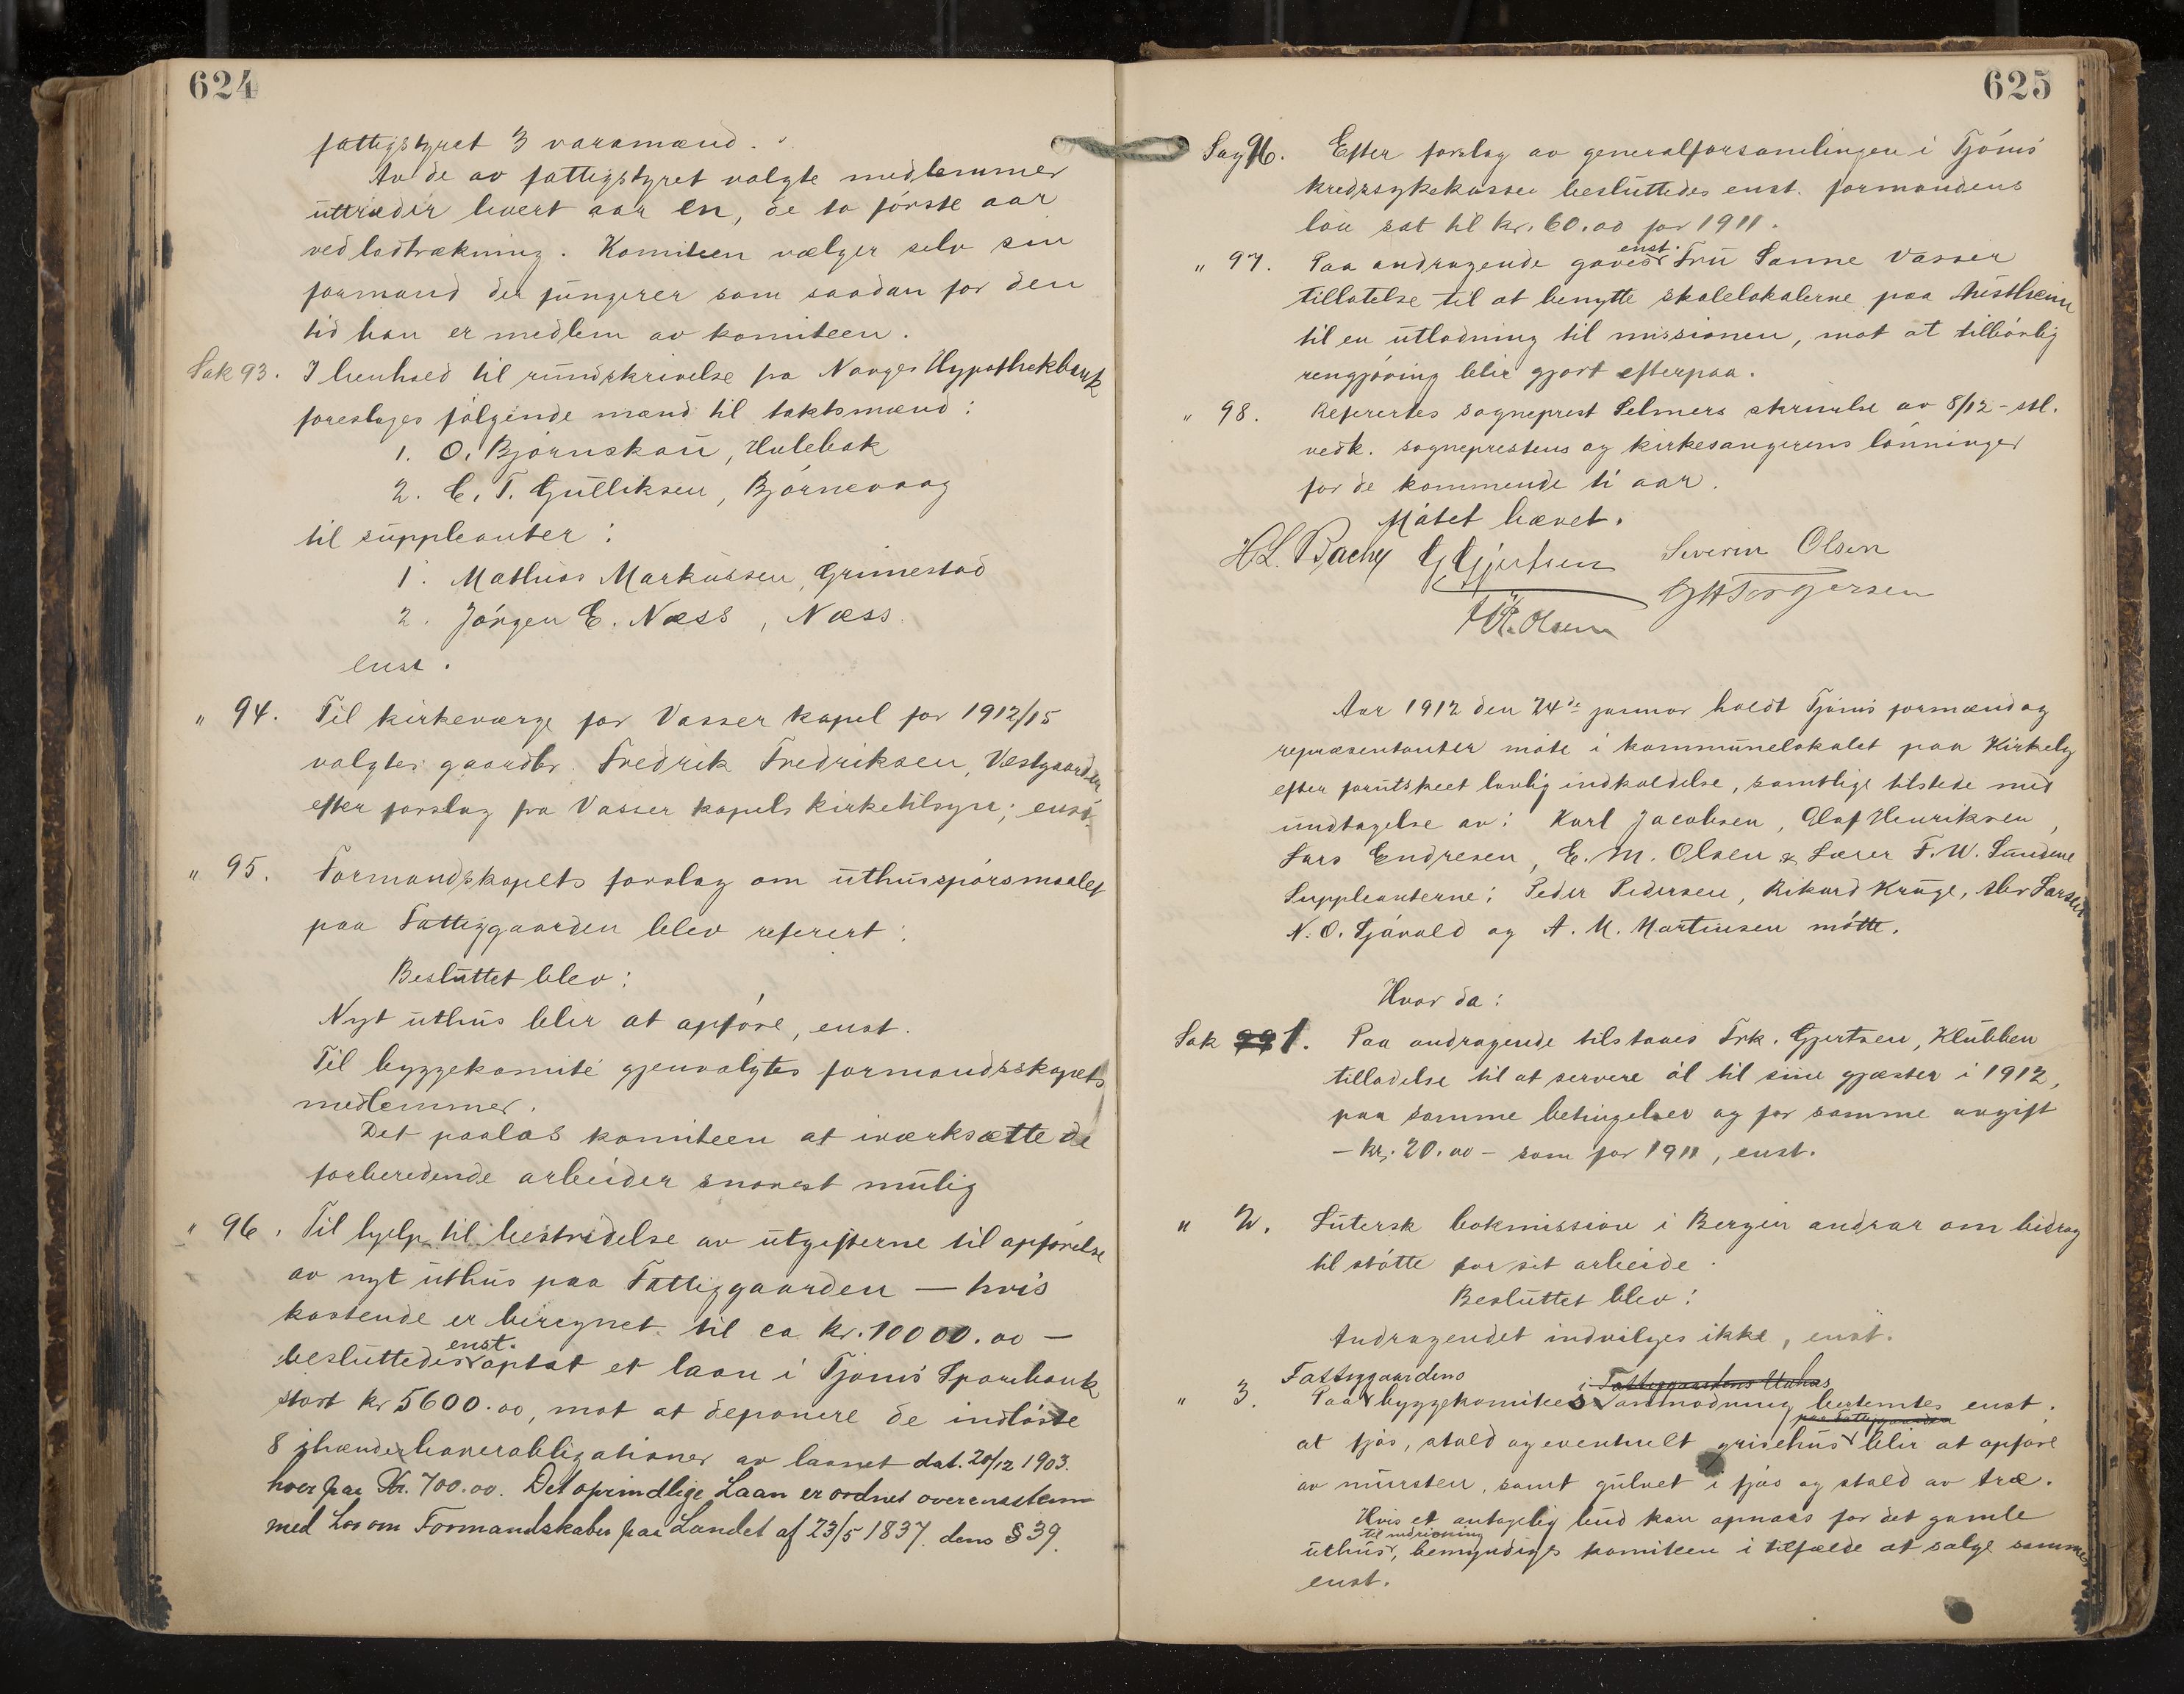 624
fattigstyret 3 varamænd.
Av de av fattigstyret valgte medlemmer
uttræder hvert aar en, de to første aar
ved lodtrækning. Komiteen vælger selv sin
formand der fungerer som saadan for den
tid han er medlem av komiteen.
Sak 93. I henhold til rundskrivelse fra Norges Hypothekbank
foreslages følgende mænd til takstmænd:
1. O. Bjørnskau, Hulebak
2. C. T. Gulliksen, Bjørnevaag
til suppleanter:
1. Mathias Markussen, Grimestad
2. Jørgen E. Næss, Næss.
enst.
" 94. Til kirkeværge for Vasser kapel for 1912/15
valgtes gaardbr. Fredrik Fredriksen, Vestgaarden
efter forslag fra Vasser kapels kirketilsyn; enst.
" 95. Formandskapets forslag om uthusspørsmaalet
paa Fattiggaarden blev referert.
Besluttet blev:
Nyt uthus blir at opføre, enst.
Til byggekomité gjenvalgtes formandsskapets
medlemmer.
Det paalas komiteen at iværksætte de
forberedende arbeider snarest mulig
" 96. Til hjelp til bestridelse av utgifterne til opførelse
av nyt uthus paa Fattiggaarden — hvis
kostende er beregnet til ca kr. 10000.00 —
enst.
besluttedes optat et laan i Tjømø Sparebank
stort kr 5600.00, mot at deponere de indløste
8 ihændehaverobligationer av laanet dat. 20/12 1903.
hver paa Kr. 700.00. Det oprindlige Laan er ordnet overensstem
med Lov om Formandskaber paa Landet af 23/5 1837. dens § 39.
625
Sag 96. Efter forslag av generalforsamlingen i Tjømø
kredssykekasse besluttedes enst. formandens
løn sat til kr. 60.00 for 1911.
enst.
" 97. Paa andragende gaves Fru Sanne Vasser
tillatelse til at benytte skolelokalerne paa Østheim
til en utlodning til missionen, mot at tilbørlig
rengjøring blir gjort efterpaa.
" 98. Referertes sogneprest Selmers skrivelse av 8/12 - stl.
vedk. sogneprestens og kirkesangerens lønninger
for de kommende ti aar.
Møtet hævet.
H. L. Bache G Gjertsen Severin Olsen
Torgersen
Olsen
Aar 1912 den 24de januar holdt Tjømø formænd og
repræsentanter møte i kommunelokalet paa Kirkely
efter forutskeet lovlig indkaldelse, samtlige tilstede med
undtagelse av: Karl Jacobsen, Olaf Henriksen,
Lars Endresen, E. M. Olsen & Lærer F. W. Sundene
Suppleanterne: Peder Pedersen, Rikard Kruge, Alv Larsen
N. O. Sjøvold og A. M. Martinsen møtte.
Hvor da:
Sak 99 1. Paa andragende tilstaaes Frk. Gjertsen, Klubben
tilladelse til at servere øl til sine gjæster i 1912,
paa samme betingelser og for samme avgift
— kr. 20.00 — som for 1911, enst.
" 2. Lutersk bokmission i Bergen andrar om bidrag
til støtte for sit arbeide.
Besluttet blev:
Andragendet indvilges ikke, enst.
Fattiggaardens i Fattiggaardens Uthus
" 3. Paa byggekomitees anmodning bestemtes enst.
paa Fattiggaarden
at fjøs, stald og eventuelt grisehus blir at opføre
av mursten, samt gulvet i fjøs og stald av træ.
Hvis et antagelig bud kan opnaaes for det gamle
til nedrivning
uthus, bemyndiges komiteen i tilfælde at sælge samme
enst.